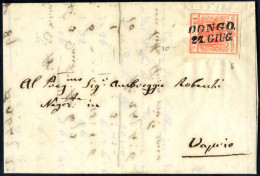 DONGO.
24. GIUG.
Al Preg.mo Sig.r Ambrogio Robecchi
Negoz.te in
Vaprio